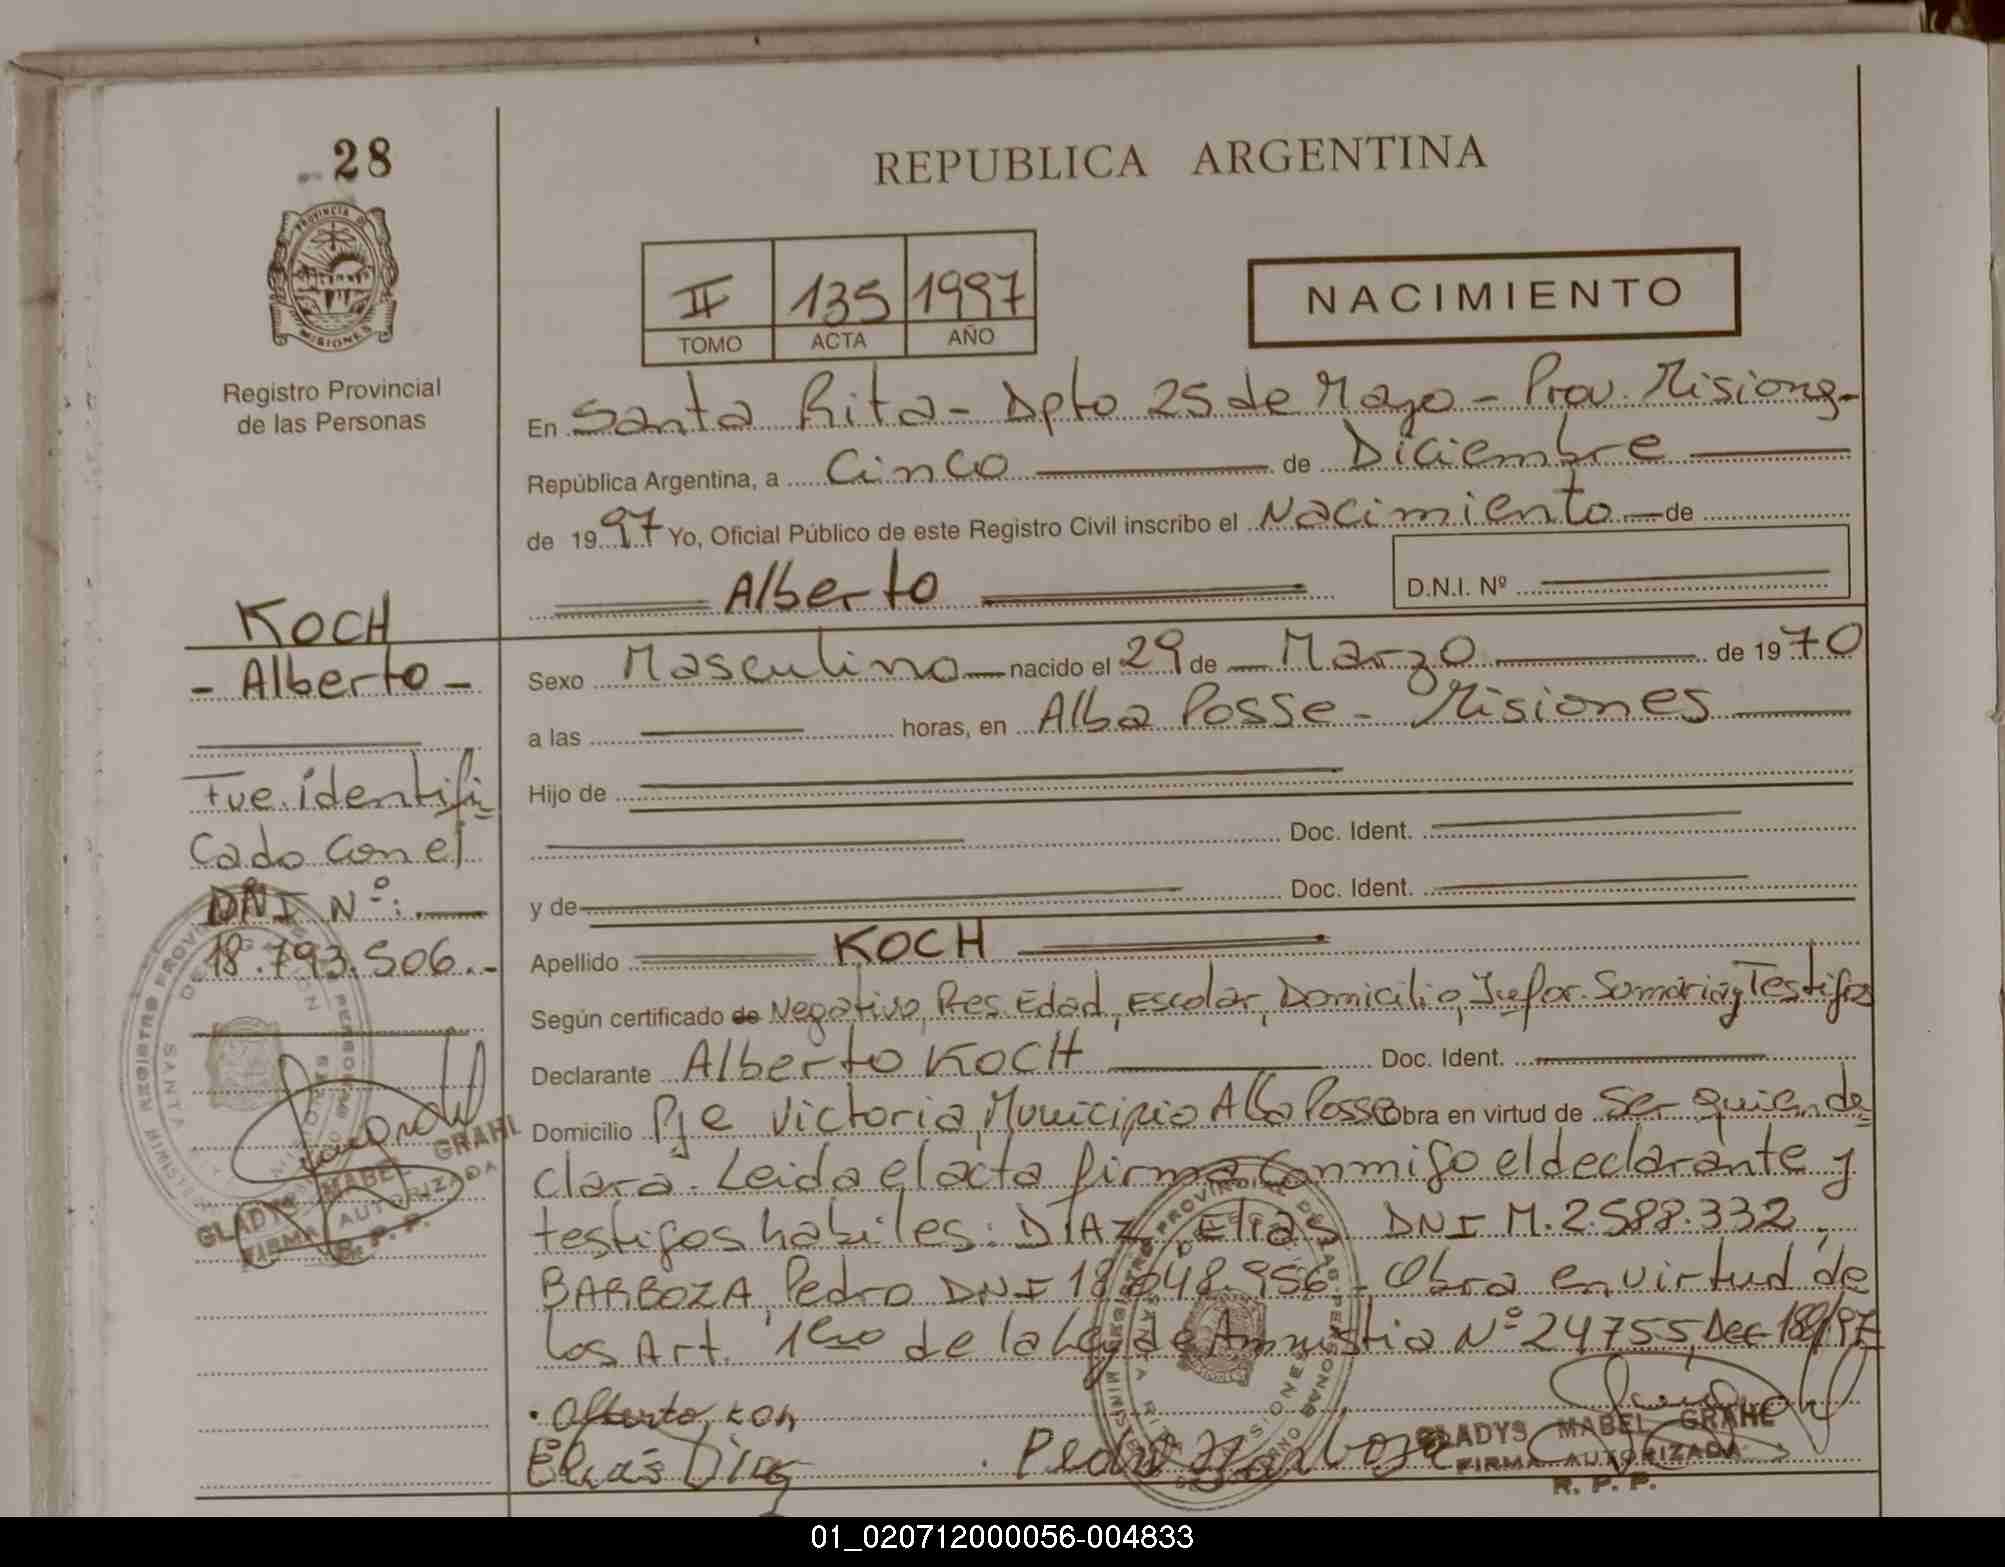 28
REPUBLICA ARGENTINA
PROVINCIA DE
MISIONES
Registro Provincial
de las Personas
II 135 1997
TOMO ACTA AÑO
NACIMIENTO
En Santa Rita - Dpto 25 de Mayo - Prov. Misiones-
República Argentina, a Cinco de Diciembre
de 1997 Yo, Oficial Público de este Registro Civil inscribo el Nacimiento de
Alberto
D.N.I. Nº
KOCH
- Alberto -
Fue identifi
cado con el
DNI Nº:
18.793.506.-
Sexo Masculino nacido el 29 de Marzo de 1970
a las horas, en Alba Posse - Misiones
Hijo de
Doc. Ident.
y de Doc. Ident.
Apellido KOCH
Según certificado de Negativo, Pres. Edad, Escolar, Domicilio, Infor. Sumaria y Testigos
Declarante Alberto KOCH Doc. Ident.
Domicilio Pje Victoria, Municipio Alba Posse Obra en virtud de Ser quien de
clara. Leida el acta firma conmigo el declarante y
testigos habiles: DIAZ, Elias DNI M. 2.588.332,
BARBOZA, Pedro DNI 18.048.956 - Obra en virtud de
los Art. 1ero de la Ley de Amnistia Nº 24755, Dec. 189/97
Alberto, koh
Elias Diaz
Pedro Barboza
GLADYS MABEL GRAHL
FIRMA AUTORIZADA
R. P. P.
GLADYS MABEL GRAHL
FIRMA AUTORIZADA
R. P. P.
01_020712000056-004833